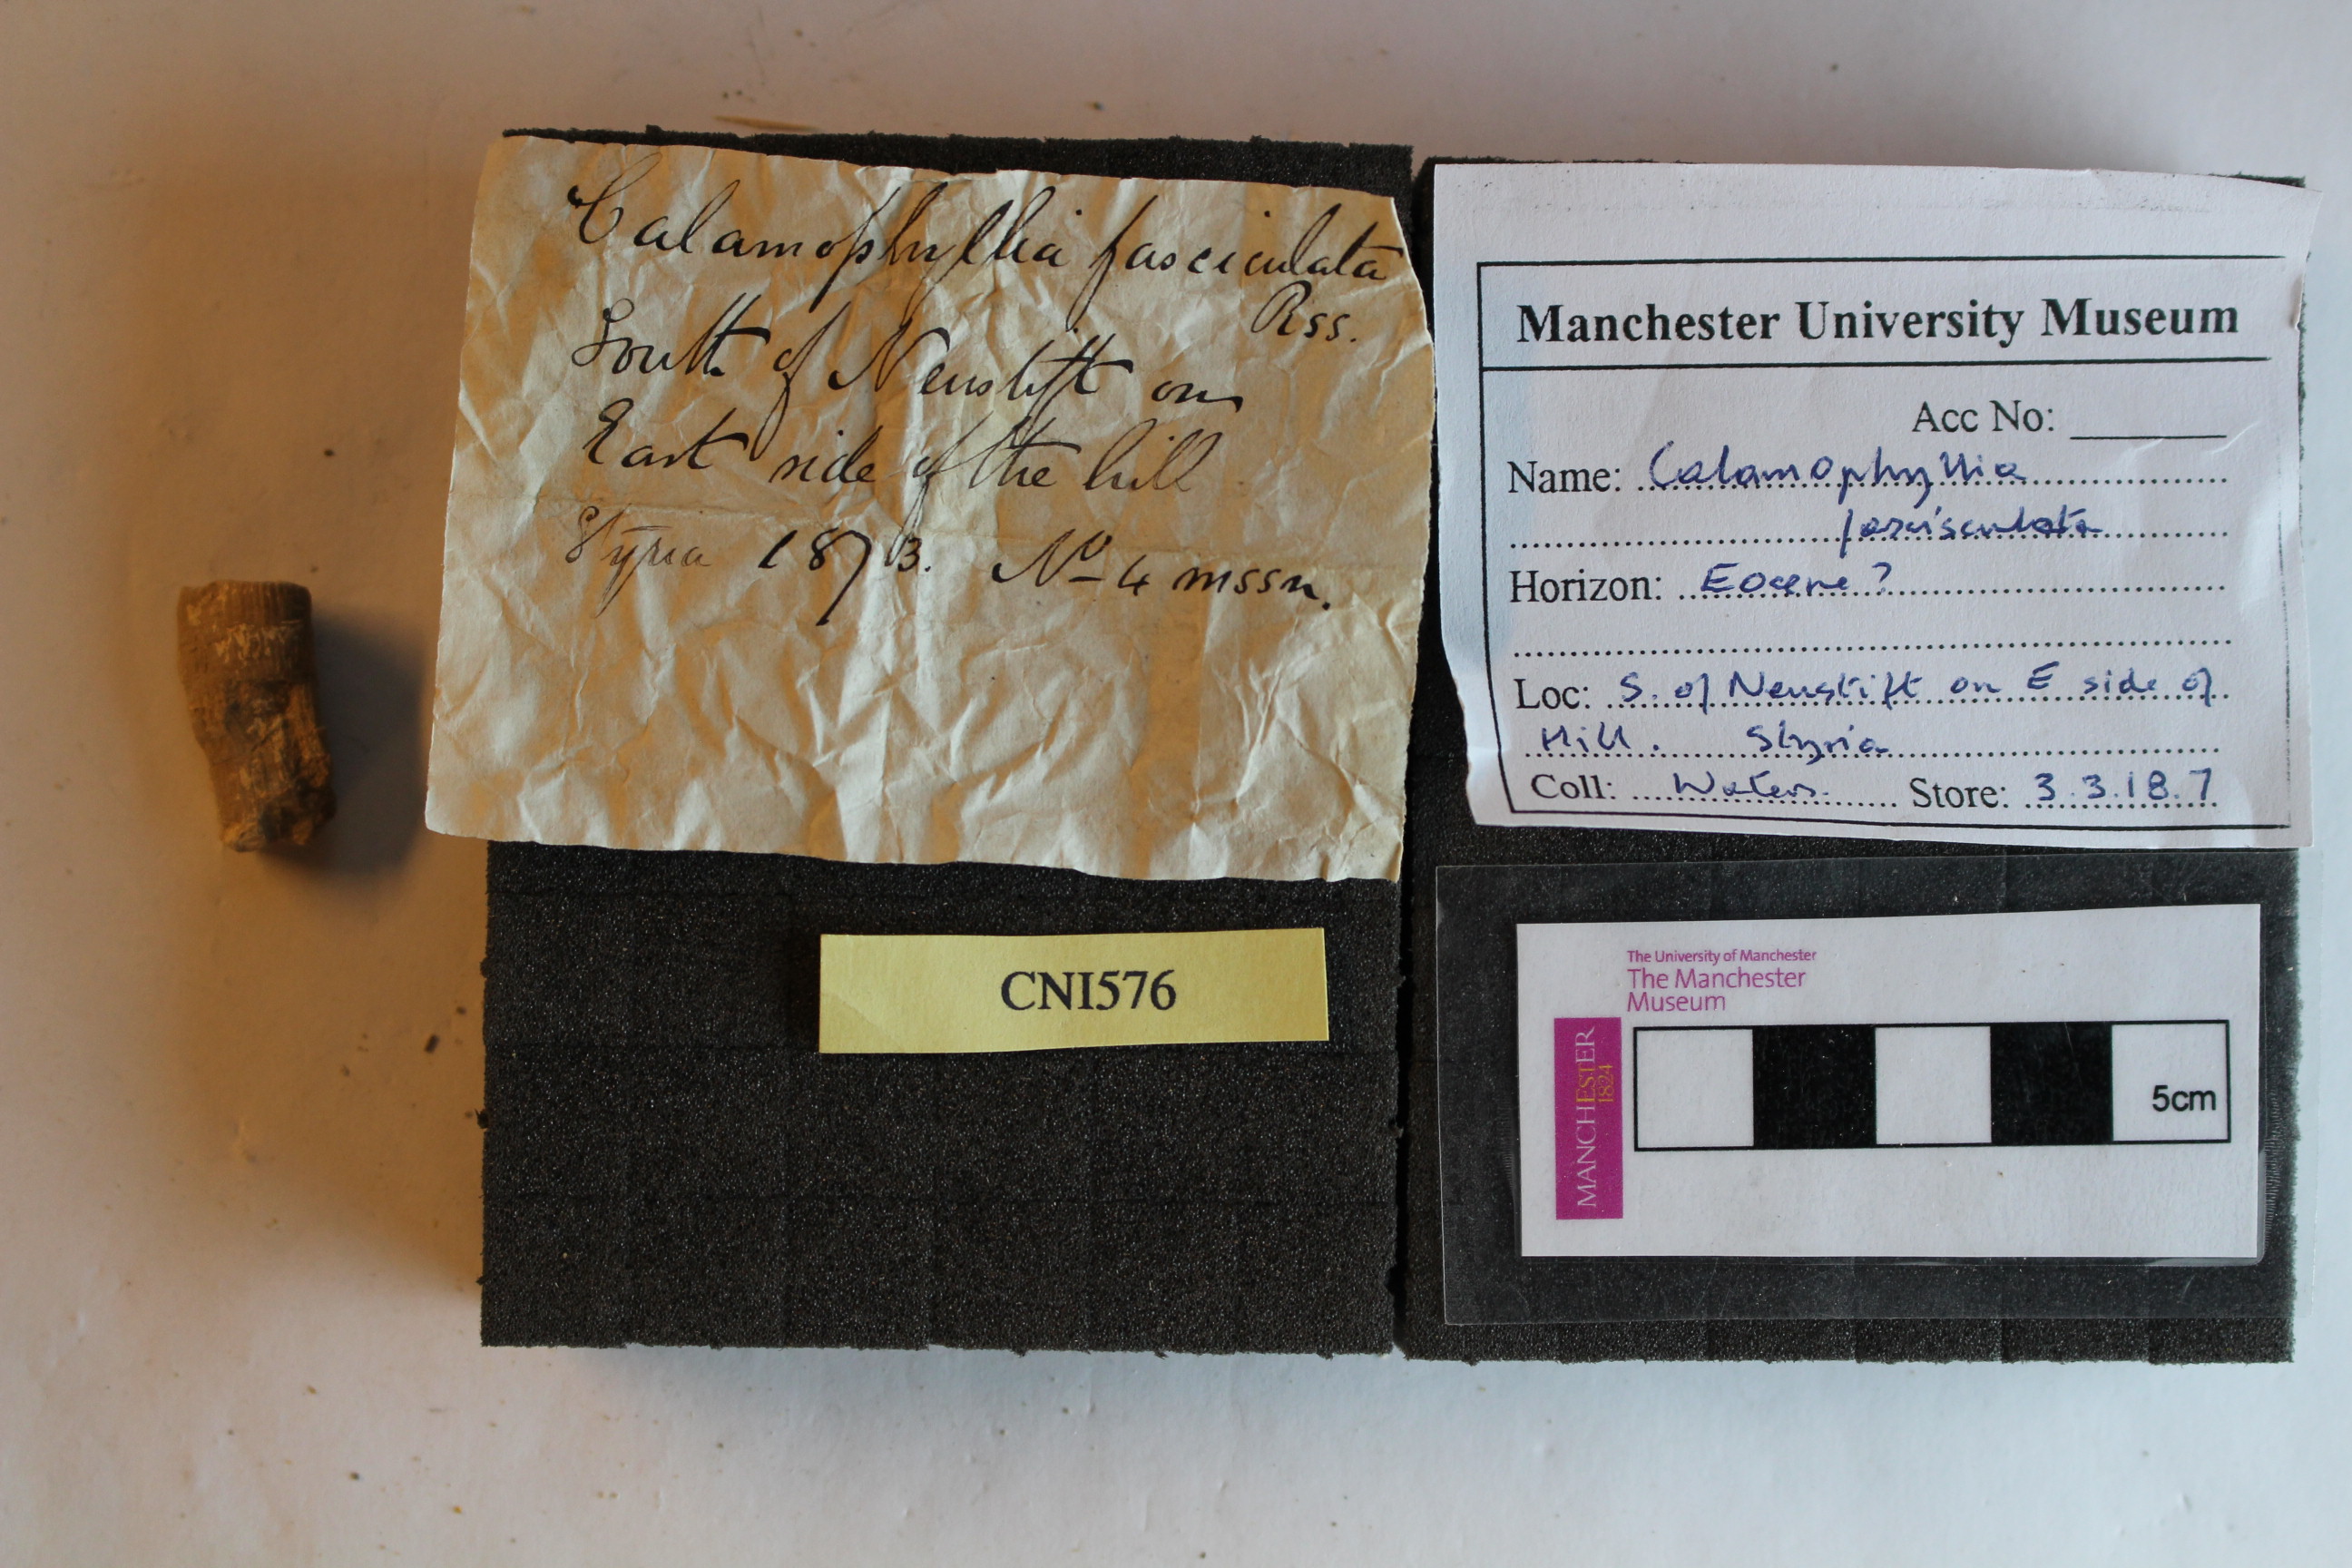 Calamophyllia fasciculata
Rss.
South of Neustift on
East side of the hill
Styria 1873. No 4 mssn.
Manchester University Museum
Acc No:
Name: Calamophyllia
fascisculata
Horizon: Eocene?
Loc: S. of Neustift on E side of
Hill. Styria
Coll: Waters. Store: 3.3.18.7
CNI576
The University of Manchester
The Manchester
Museum
MANCHESTER
1824
5cm